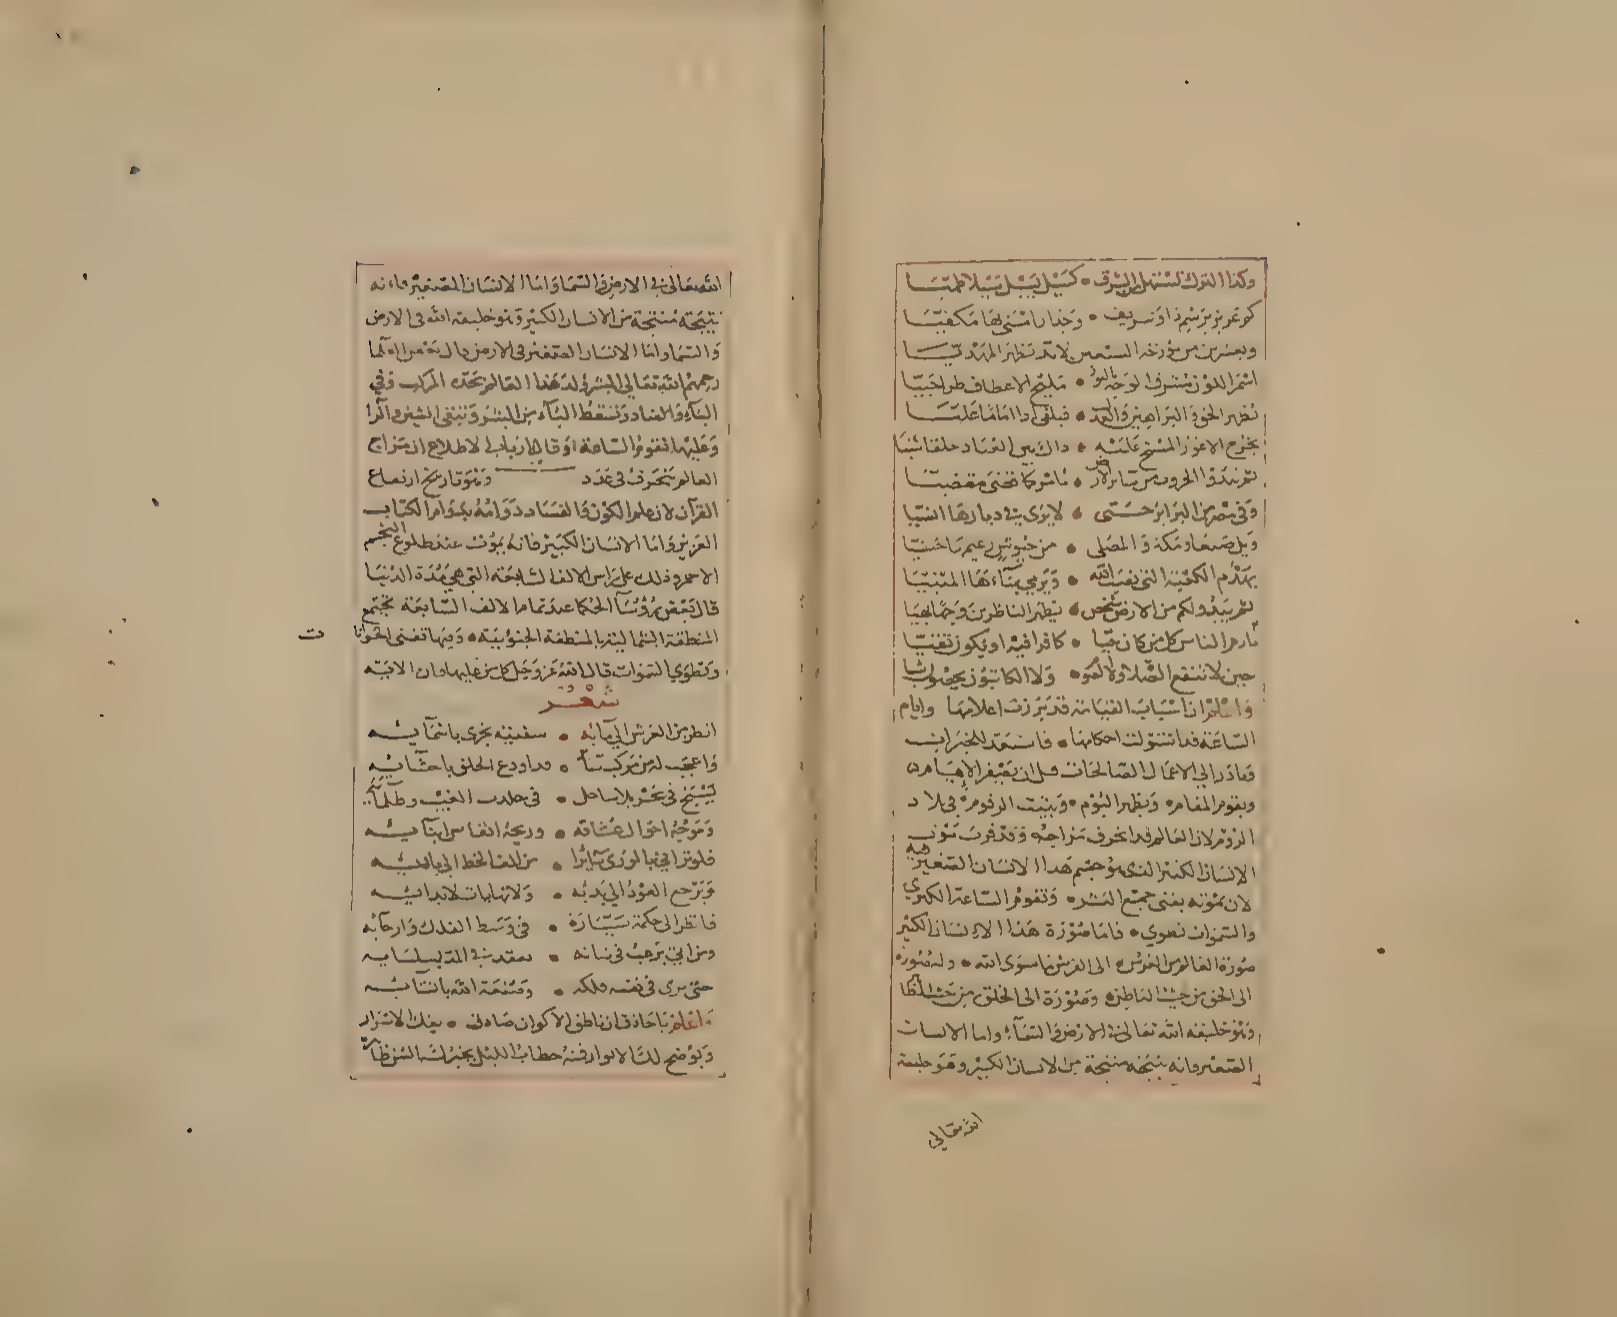 وكذا الترك تستهل الشرق • كسيل يسيل سيلا طميا
كم عزيز يرسم ذا وشريف •
وبعشرين من مؤرخه السبعين لابد تظهر المهديا
اسمر اللون مشرق الوجه • مليح الاعطاف طرا حييا
يظهر الحق والبراهين والعدل • فيلقى اذا اماما عليا
يخرج الاعور المسيح عليه •
ثم تبدوا الحروب من سائر الارض •
وفي مصر من البرابر حتى • لا يرى في ديارها
ويل صنعا ومكة والمصلى • من حبوش زعيم
يهدم الكعبة التي نصب الله • ويرمي بناءها المبنيا
ثم يبدو لكم من الارض شخص • يظهر الناظرين وجها بهيا
آمر الناس كل من كان حيا • كافرا فيه او يكون تقيا
حين لا تنفع الصلاة ولا الصوم • ولا الكاتبون يحصون شيا
واعلم ان اسباب القيامة قد برزت اعلامها وايام
الساعة قد استولت احكامها • فاستعد للخيرات
وبادر الى الاعمال الصالحات قبل ان
ويقوم المقام • ويظهر البوم • وينبت الزقوم • في بلاد
الروم لان العالم قد انحرف مزاجه وقد قرب موت
الانسان الكبير الذي هو جسم هذا الانسان الصغير
لان بموته يفنى جميع البشر • وتقوم الساعة الكبرى
والسموات تطوى • فاما صورة هذا الانسان الكبير
صورة العالم من العرش الى الفرش ما سوى الله • وله صورة
الى الحق من حيث الباطن • وصورة الى الخلق من حيث الظا
وهو خليفه الله تعالى في الارض والسماء واما الانسان
الصغير فانه نتيجة منتجة من الانسان الكبير وهو خليفة
الله تعالى
الله تعالى في الارض والسما واما الانسان الصغير فانه
نتيجة منتجة من الانسان الكبير وهو خليفه الله في الارض
والسما واما الانسان الصغير في الارض
رحمهم الله تعالى البشر ولد هذا العالم
الباء والضاد وتسقط الباء من البشر وتبقى الشين والرا
وعليها تقوم الساعة او قال ارباب الاطلاع ان مزاج
العالم ينحرف في عدد وهو تاريخ ارتفاع
القرآن لان علم الكون والفساد دوامه بدوام الكتاب
العزيز واما الانسان الكبير فانه يموت عند طلوع النجم
الاحمر وذلك على راس الالف السابعة التي هي مدة الدنيا
قال بعض رؤسآ الحكما عند تمام الالف السابعة تجتمع
المنطقة الشمالية بالمنطقة الجنوبية • وفيها تفنى الحيوانا
ت
وتطوي السموات قال الله عز وجل كل من عليها فان الاية
شعر
انظر من العرش الى مائه • سفينة تجري باسمآئه
واعجب له من مركب • قد اودع الخلق باحشائه
يسبح في بحر بلا ساحل • في حندس الغيب وظلمآئه
وموجه احوال عشاقه • وريحه انفاس ابنائه
فلو تراه بالورى سائرا • من الف الخط الى يائه
ويرجع العود الى بدئه • ولا نهايات لابدائه
فانظر الى حكمة سيارة • في وسط الفلك وارجآئه
ومن اتى يرغب في شانه •
حتى يرى في نفسه فلكه • وصنعة الله بانشائه
واعلم يا حاذق ان ناطق الاكوان صادق • يفيدك الاسرار
ويوضح لك الانوار